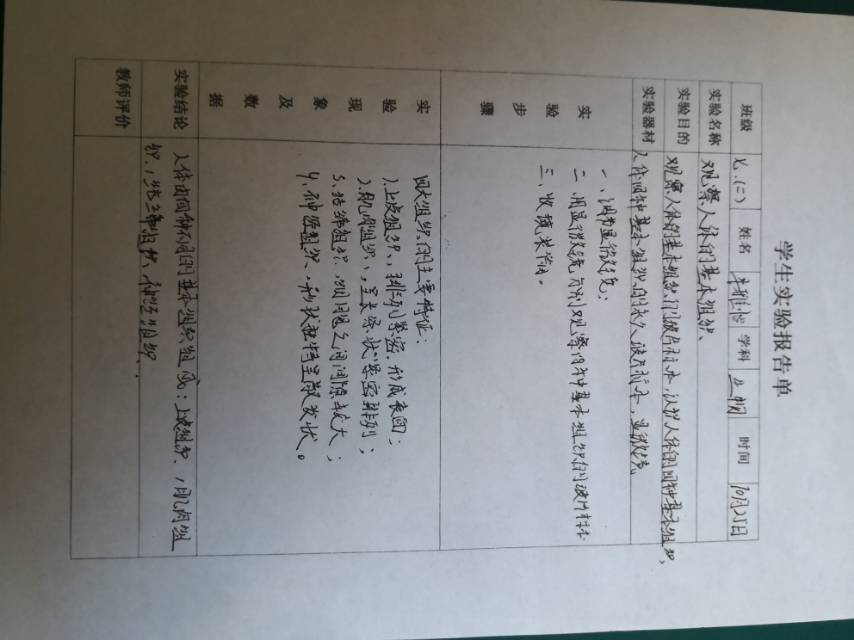 学生实验报告单
班级 七.(二) 姓名 学科 生物 时间 10月25日
实验名称 观察人体的基本组织、
实验目的 观察人体的基本组织的玻片标本,认识人体的四种基本组织,
实验器材 人体四种基本组织的永久玻片标本,显微镜
实验步骤
一、调节显微镜;
二、用显微镜分别观察四种基本组织的玻片标本
三、收镜
实验现象及数据
四大组织的主要特征:
1.上皮组织、排列紧密.形成表面;
2.肌肉组织、,呈长条状紧密排列;
3、结缔组织.细胞之间间隙较大;
4、神经组织、形状独特呈
实验结论 人体由四种不同的基本组织组成:上皮组织、,肌肉组
织.,结缔组织、神经组织.
教师评价